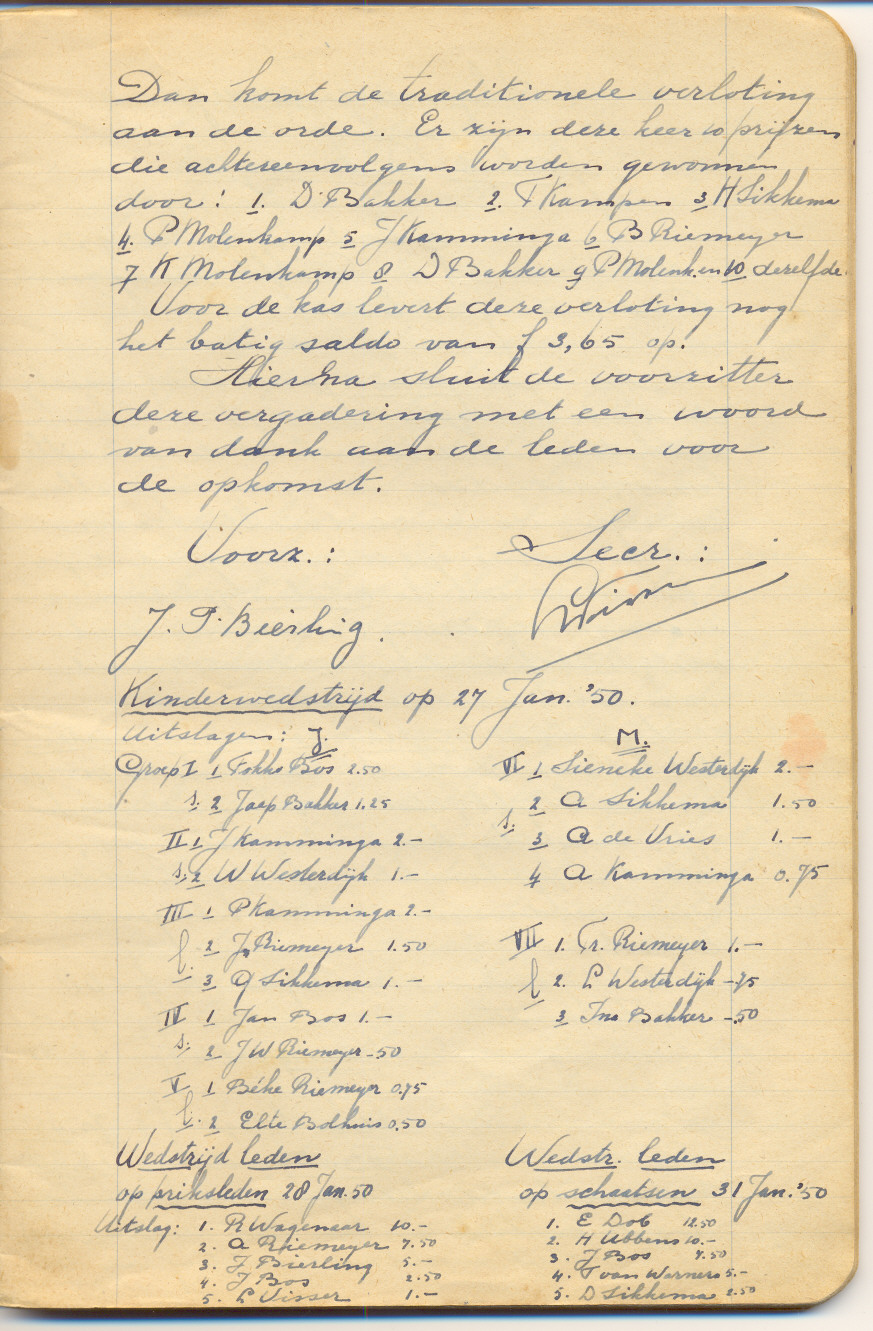 Dan komt de traditionele verloting
aan de orde. Er zijn deze keer 10 prijzen
die achtereenvolgens worden gewonnen
door: 1. D Bakker 2. T Kampen 3 H Sikkema
4. P Molenkamp 5 J Kamminga 6 B Riemeyer
7 K Molenkamp 8 D Bakker 9 P Molenk. en 10 dezelfde.
Voor de kas levert deze verloting nog
het batig saldo van f 3,65 op.
Hierna sluit de voorzitter
deze vergadering met een woord
van dank aan de leden voor
de opkomst.
Voorz.: Secr.:
J. P. Bierling.
Kinderwedstrijd op 27 Jan. '50.
Uitslagen: J.
Groep I 1 Fokko Bos 2.50
s. 2 Jaap Bakker 1.25
II 1 J Kamminga 2.–
s. 2 W Westerdijk 1.–
III 1 P Kamminga 2.–
f. 2 Riemeyer 1.50
3 G Sikkema 1.–
IV 1 Jan Bos 1.–
s. 2 J W Riemeyer –50
V 1 Béke Riemeyer 0.75
f. 2 Elte Bolhuis 0.50
M.
VI 1 Sieneke Westerdijk 2.–
2 A Sikkema 1.50
s. 3 A de Vries 1.–
4 A Kamminga 0.75
VII 1. Tr. Riemeyer 1.–
f 2. L Westerdijk –75
3 Ina Bakker –50
Wedstrijd leden
op priksleden 28 Jan. 50
Uitslag: 1. R Wagenaar 10.–
2. A Riemeyer 7.50
3. J Bierling 5.–
4. J Bos 2.50
5. L Visser 1.–
Wedstr. leden
op schaatsen 31 Jan. '50
1. E Dob 12.50
2. H Ubbens 10.–
3. J Bos 7.50
4. T van Warners 5.–
5. D Sikkema 2.50